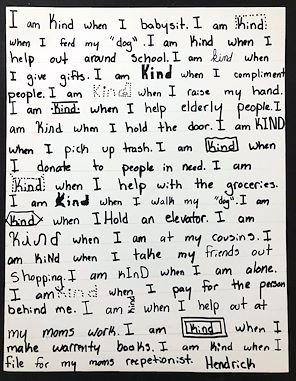 I am Kind when I babysit. I am Kind
when I ferd my "dog". I am Kind when I
help out around school. I am kind when
I give gifts. I am Kind when I compliment
people. I am Kind when I raise my hand.
I am Kind. when I help elderly people. I
am Kind when I hold the door. I am KIND
when I pick up trash. I am Kind when
I donate to people in need. I am
Kind when I help with the groceries.
I am Kind when I walk my "dog". I am
Kind when I Hold an elevator. I am
Kind when I am at my cousins. I
am KiNd when I take my friends out
shopping. I am kInD when I am alone.
I am Kind when I pay for the person
behind me. I am kind when I help out at
my moms work. I am Kind when I
make warrenty books. I am Kind when I
file for my moms recpetionist. Hendrick